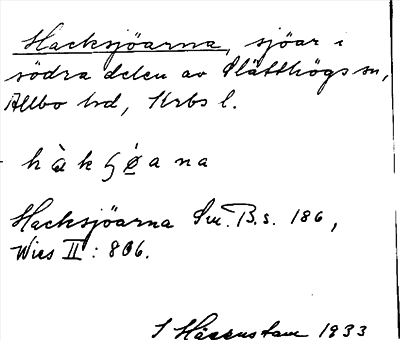 Hacksjöarna, sjöar i
södra delen av Slätthögs sn,
Allbo hd, Krbs l.
hàkʂǿana
Hacksjöarna Sm. B. s. 186,
Wies II: 806.
1933